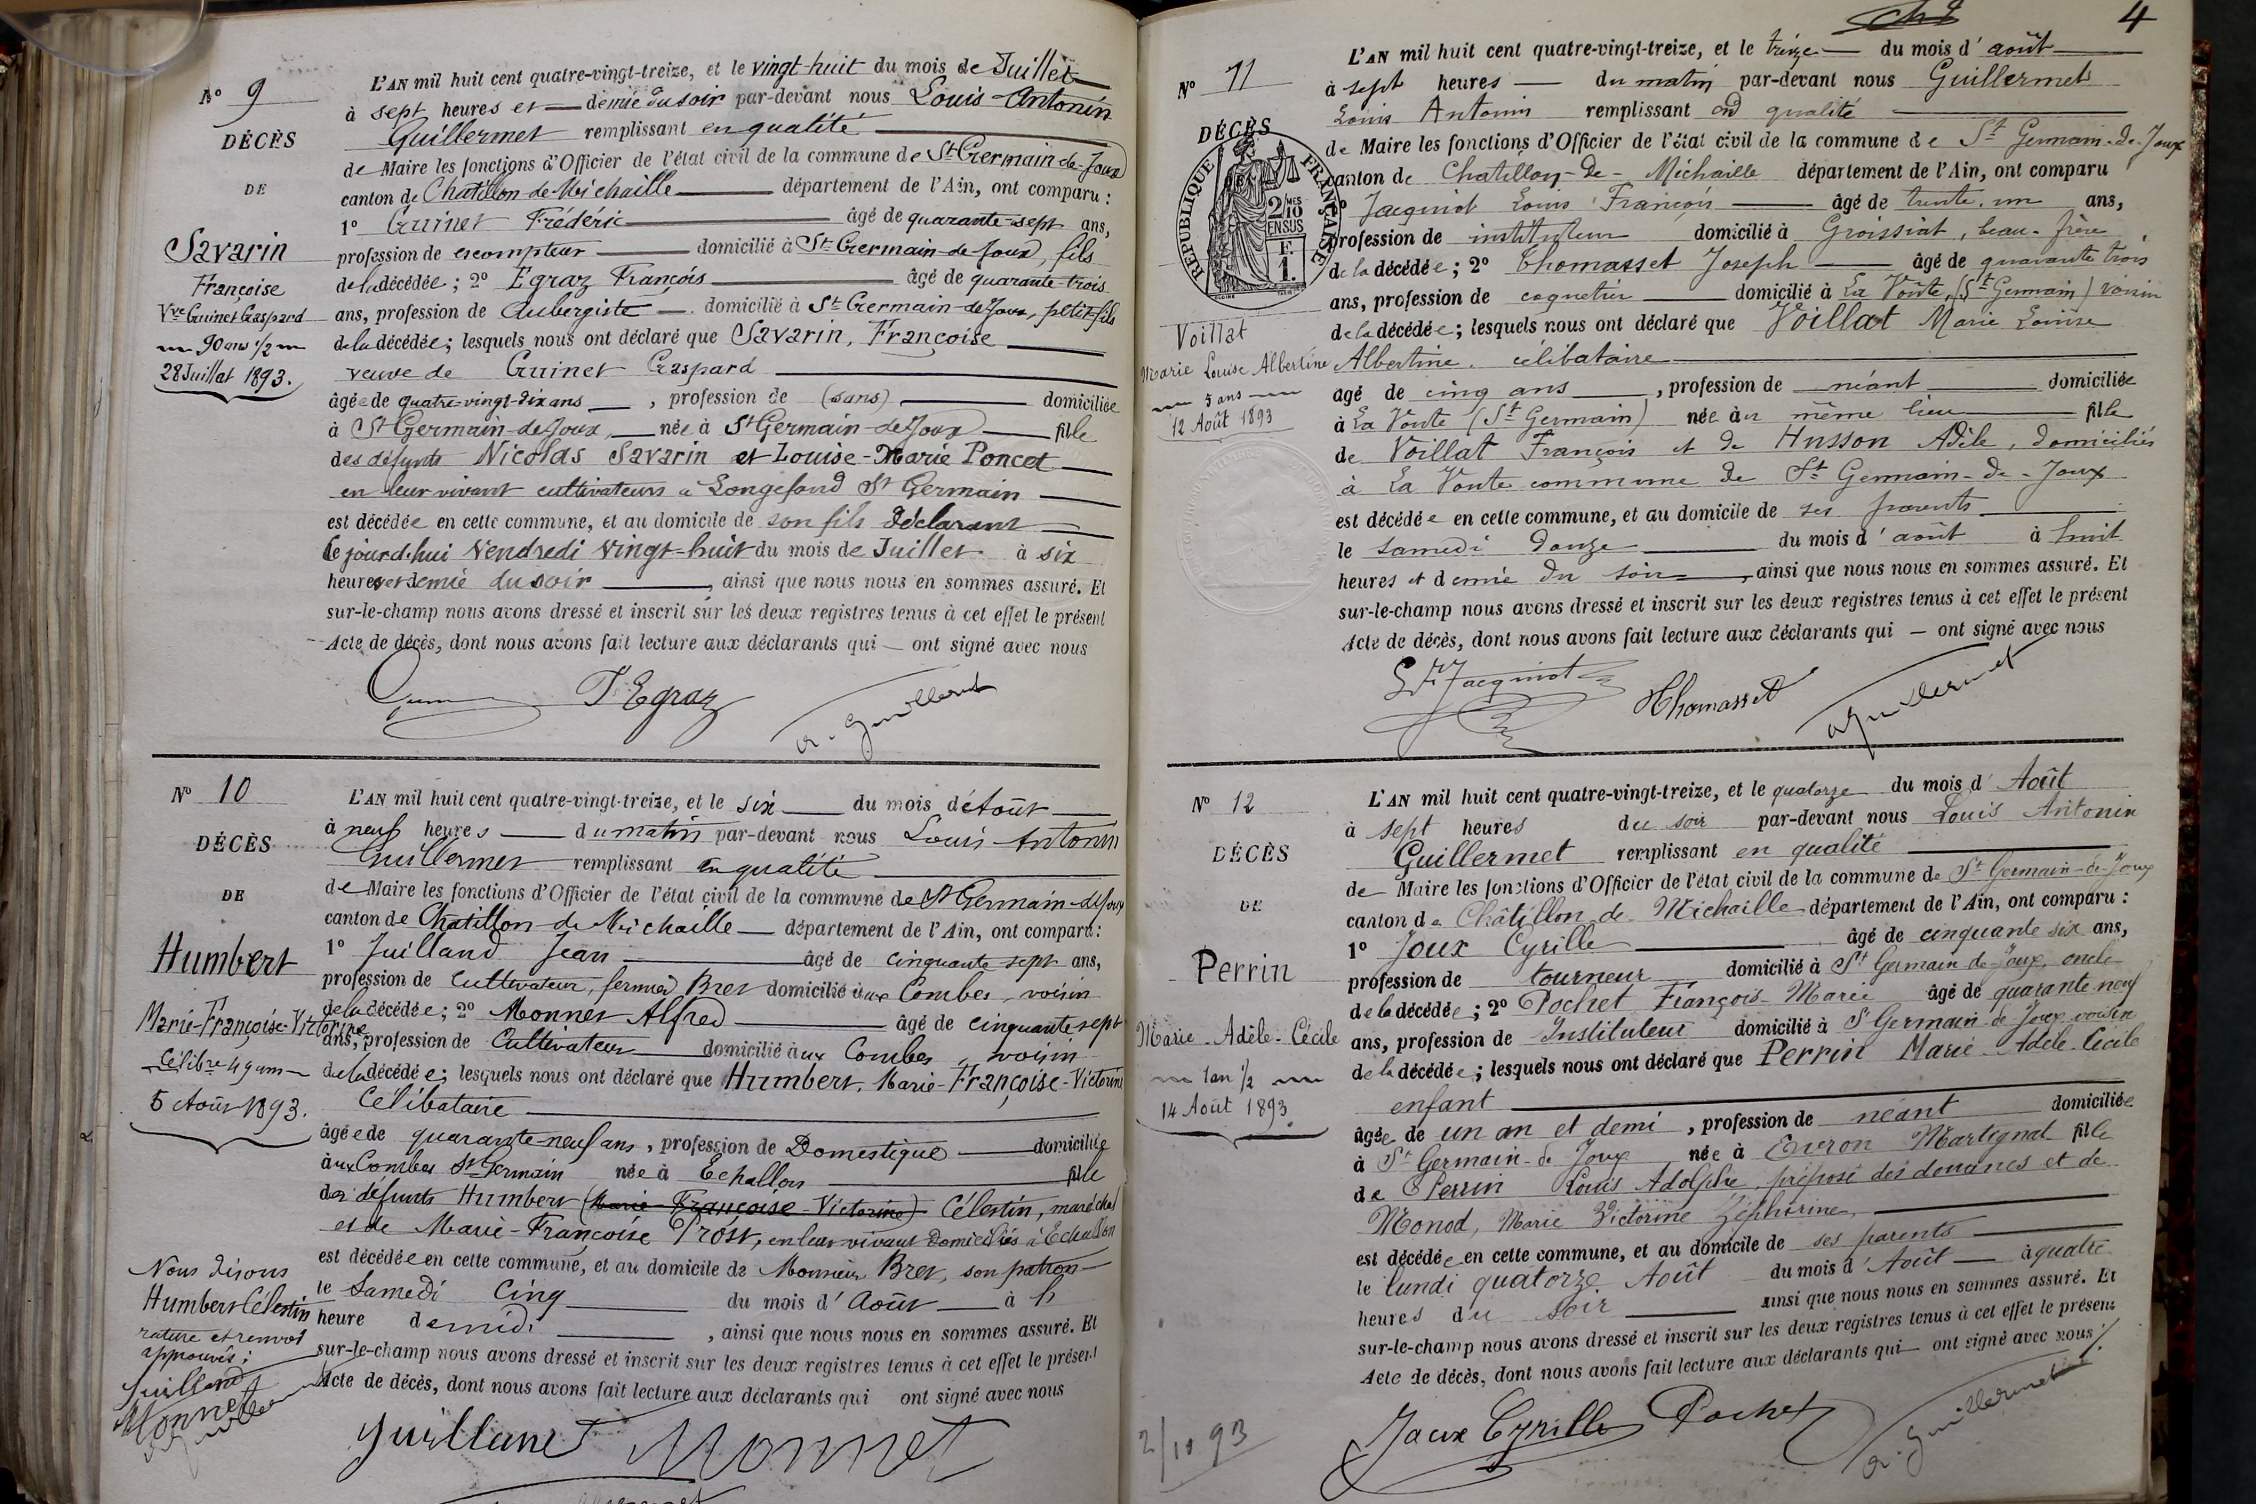 N° 9
DÉCÈS
DE
Savarin
Françoise
Vve Guinet Gaspard
90 ans 1/2
28 Juillet 1893.
L'AN mil huit cent quatre-vingt-treize, et le vingt-huit du mois de Juillet
à sept heures et demie du soir par-devant nous Louis-Antonin
Guillermet remplissant en qualité
de Maire les fonctions d'Officier de l'état civil de la commune de St Germain-de-Joux
canton de Chatillon de Michaille département de l'Ain, ont comparu :
1° Guinet Frédéric âgé de quarante-sept ans,
profession de escompteur domicilié à St Germain-de-Joux, fils
de la décédée ; 2° Egraz François âgé de quarante-trois
ans, profession de Aubergiste domicilié à St Germain-de-Joux, petit-fils
de la décédée ; lesquels nous ont déclaré que Savarin, Françoise
veuve de Guinet Gaspard
âgée de quatre-vingt-dix ans, profession de (sans) domiciliée
à St Germain-de-Joux, née à St Germain-de-Joux fille
des défunts Nicolas Savarin et Louise-Marie Poncet
en leur vivant cultivateurs à Longefand St Germain
est décédée en cette commune, et au domicile de son fils déclarant
le jourd'hui Vendredi vingt-huit du mois de Juillet à six
heures et demie du soir, ainsi que nous nous en sommes assuré. Et
sur-le-champ nous avons dressé et inscrit sur les deux registres tenus à cet effet le présent
Acte de décès, dont nous avons fait lecture aux déclarants qui ont signé avec nous
F Egraz
A. Guillermet
N° 10
DÉCÈS
DE
Humbert
Marie-Françoise-Victorine
Célibre 49 ans
5 Août 1893.
L'AN mil huit cent quatre-vingt-treize, et le six du mois d'Août
à neuf heures du matin par-devant nous Louis Antonin
Guillermet remplissant en qualité
de Maire les fonctions d'Officier de l'état civil de la commune de St Germain-de-Joux
canton de Chatillon-de-Michaille département de l'Ain, ont comparu :
1° Juilland Jean âgé de cinquante sept ans,
profession de Cultivateur, fermier Bret domicilié aux Combes, voisin
de la décédée ; 2° Monnet Alfred âgé de cinquante sept
ans, profession de Cultivateur domicilié aux Combes, voisin
de la décédée ; lesquels nous ont déclaré que Humbert, Marie-Françoise-Victorine
Célibataire
âgée de quarante-neuf ans, profession de Domestique domiciliée
aux Combes St Germain née à Echallon fille
des défunts Humbert (Marie-Françoise-Victorine) Célestin, maréchal
et de Marie-Françoise Prost, en leur vivant domiciliés à Echallon
est décédée en cette commune, et au domicile de Monsieur Bret, son patron
le Samedi Cinq du mois d'Août à h
heure de midi, ainsi que nous nous en sommes assuré. Et
sur-le-champ nous avons dressé et inscrit sur les deux registres tenus à cet effet le présent
Acte de décès, dont nous avons fait lecture aux déclarants qui ont signé avec nous
Nous disons
Humbert Célestin
rature et renvoi
approuvés :
Juilland
Monnet
Juilland Monnet
4
N° 11
DÉCÈS
RÉPUBLIQUE FRANÇAISE
2/10 MES
EN SUS
F.
1.
Voillat
Marie Louise Albertine
5 ans
12 Août 1893
L'AN mil huit cent quatre-vingt-treize, et le treize du mois d'août
à sept heures du matin par-devant nous Guillermet
Louis Antonin remplissant en qualité
de Maire les fonctions d'Officier de l'état civil de la commune de St Germain-de-Joux
canton de Chatillon-de-Michaille département de l'Ain, ont comparu
1° Jacquiot Louis François âgé de trente-un ans,
profession de instituteur domicilié à Groissiat, beau-frère
de la décédée ; 2° Thomasset Joseph âgé de quarante trois
ans, profession de coquetier domicilié à La Voûte, (St Germain) voisin
de la décédée ; lesquels nous ont déclaré que Voillat Marie Louise
Albertine. célibataire
âgé de cinq ans, profession de néant domiciliée
à La Voute (St Germain) née au même lieu fille
de Voillat François et de Husson Adèle, domiciliés
à La Voute commune de St Germain-de-Joux
est décédée en cette commune, et au domicile de ses parents
le samedi douze du mois d'août à huit
heures et demie du soir, ainsi que nous nous en sommes assuré. Et
sur-le-champ nous avons dressé et inscrit sur les deux registres tenus à cet effet le présent
Acte de décès, dont nous avons fait lecture aux déclarants qui — ont signé avec nous
Jacquiot
Thomasset
A Guillermet
N° 12
DÉCÈS
DE
Perrin
Marie-Adèle-Cécile
1 an 1/2
14 Août 1893.
L'AN mil huit cent quatre-vingt-treize, et le quatorze du mois d'Août
à sept heures du soir par-devant nous Louis Antonin
Guillermet remplissant en qualité
de Maire les fonctions d'Officier de l'état civil de la commune de St Germain-de-Joux
canton de Châtillon de Michaille département de l'Ain, ont comparu :
1° Joux Cyrille âgé de cinquante six ans,
profession de tourneur domicilié à St Germain de Joux, oncle
de la décédée ; 2° Pochet François-Marie âgé de quarante neuf
ans, profession de Instituteur domicilié à St Germain de Joux voisin
de la décédée ; lesquels nous ont déclaré que Perrin Marie-Adèle-Cécile
enfant
âgée de un an et demi, profession de néant domiciliée
à St Germain-de Joux née à Evron Martignat fille
de Perrin Louis Adolphe, préposé des douanes et de
Monod, Marie Victorine Zéphirine,
est décédée en cette commune, et au domicile de ses parents
le lundi quatorze Août du mois d'Août à quatre
heures du soir ainsi que nous nous en sommes assuré. Et
sur-le-champ nous avons dressé et inscrit sur les deux registres tenus à cet effet le présent
Acte de décès, dont nous avons fait lecture aux déclarants qui ont signé avec nous ./.
Joux Cyrille Pochet
A. Guillermet
2/10 93